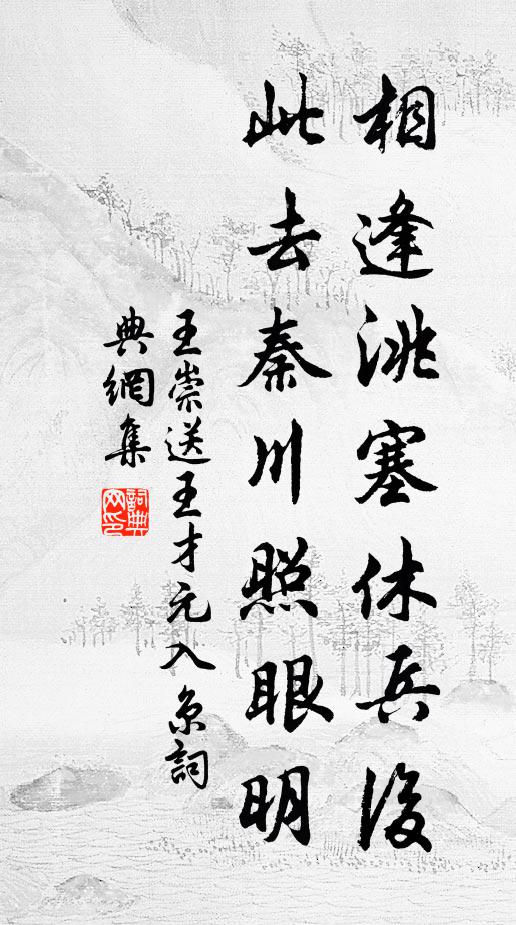 相逢洮塞休兵後
此去秦川照眼明
王崇送王才元入京詞
典網集
詞典網印